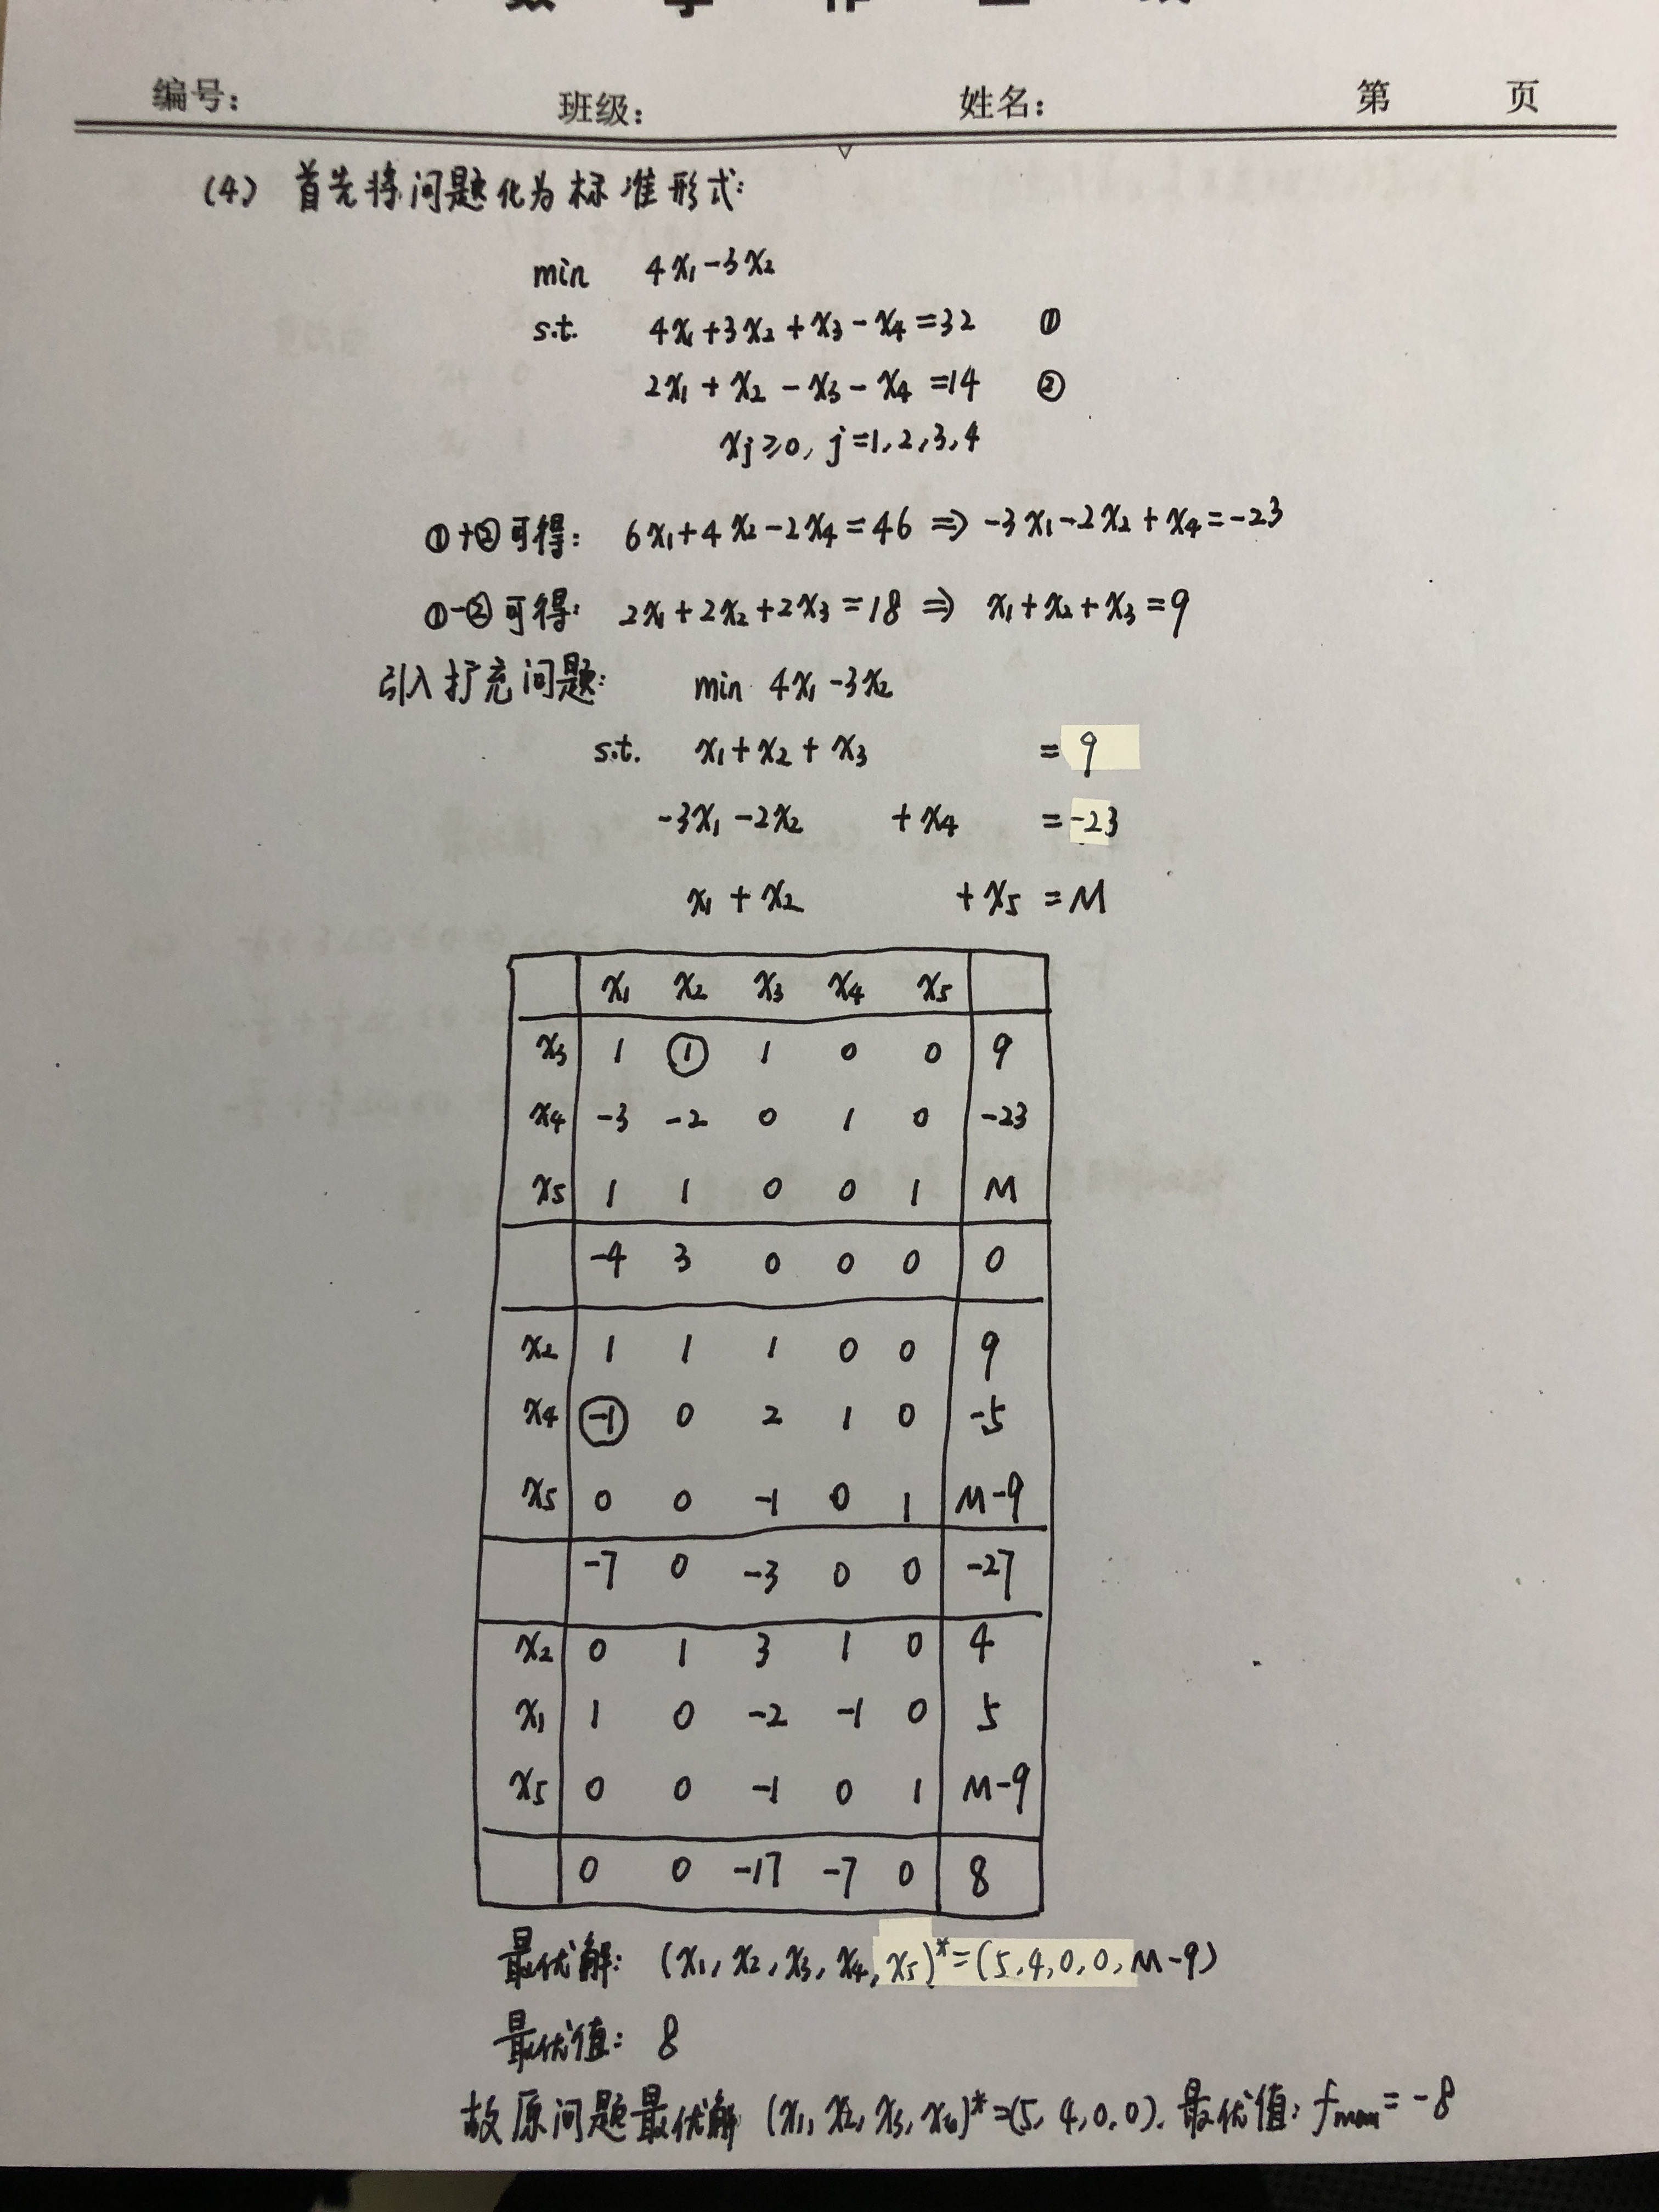 编号: 班级: 姓名: 第 页
(4) 首先将问题化为标准形式:
min 4x₁-3x₂
s.t. 4x₁+3x₂+x₃-x₄=32 ①
2x₁+x₂-x₃-x₄=14 ②
xj≥0, j=1,2,3,4
①+②可得: 6x₁+4x₂-2x₄=46 ⇒ -3x₁-2x₂+x₄=-23
①-②可得: 2x₁+2x₂+2x₃=18 ⇒ x₁+x₂+x₃=9
引入扩充问题: min 4x₁-3x₂
s.t. x₁+x₂+x₃ =9
-3x₁-2x₂ +x₄ =-23
x₁+x₂ +x₅=M
x₁ x₂ x₃ x₄ x₅
x₃ 1 1 1 0 0 9
x₄ -3 -2 0 1 0 -23
x₅ 1 1 0 0 1 M
-4 3 0 0 0 0
x₂ 1 1 1 0 0 9
x₄ -1 0 2 1 0 -5
x₅ 0 0 -1 0 1 M-9
-7 0 -3 0 0 -27
x₂ 0 1 3 1 0 4
x₁ 1 0 -2 -1 0 5
x₅ 0 0 -1 0 1 M-9
0 0 -17 -7 0 8
最优解: (x₁,x₂,x₃,x₄,x₅)*=(5,4,0,0,M-9)
最优值: 8
故原问题最优解 (x₁,x₂,x₃,x₄)*=(5,4,0,0). 最优值: fmax=-8